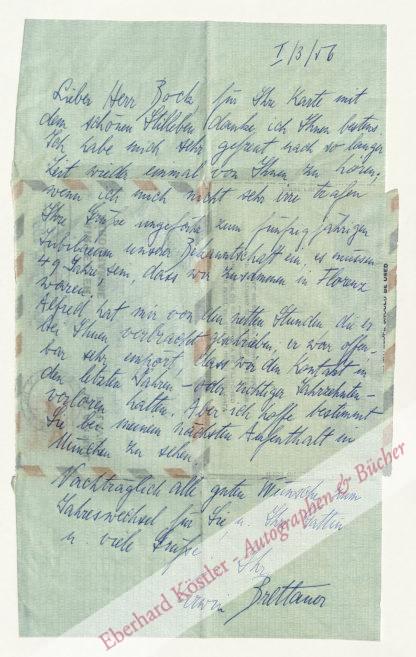 I/3/56
Lieber Herr Bock, für Ihre Karte mit
dem schönen Stilleben danke ich Ihnen bestens.
Ich habe mich sehr gefreut nach so langer
Zeit wieder einmal von Ihnen zu hören;
wenn ich mich nicht sehr irre trafen
Ihre Grüße ungefähr zum fünfzigjährigen
Jubiläum unserer Bekanntschaft ein, es müssen
49 Jahre sein, dass wir zusammen in Florenz
waren.
Alfred hat mir von den netten Stunden die er
bei Ihnen verbracht geschrieben, er war offen-
bar sehr empört, dass wir den Kontakt in
den letzten Jahren - oder richtiger Jahrzehnten -
verloren hatten. Aber ich hoffe bestimmt
Sie bei meinem nächsten Aufenthalt in
München zu sehen.
Nachträglich alle guten Wünsche zum
Jahreswechsel für Sie u. Ihre Gattin
u. viele Grüße!
Ihr
Erwin Brettauer
SHOULD BE USED
Eberhard Köstler - Autographen & Bücher